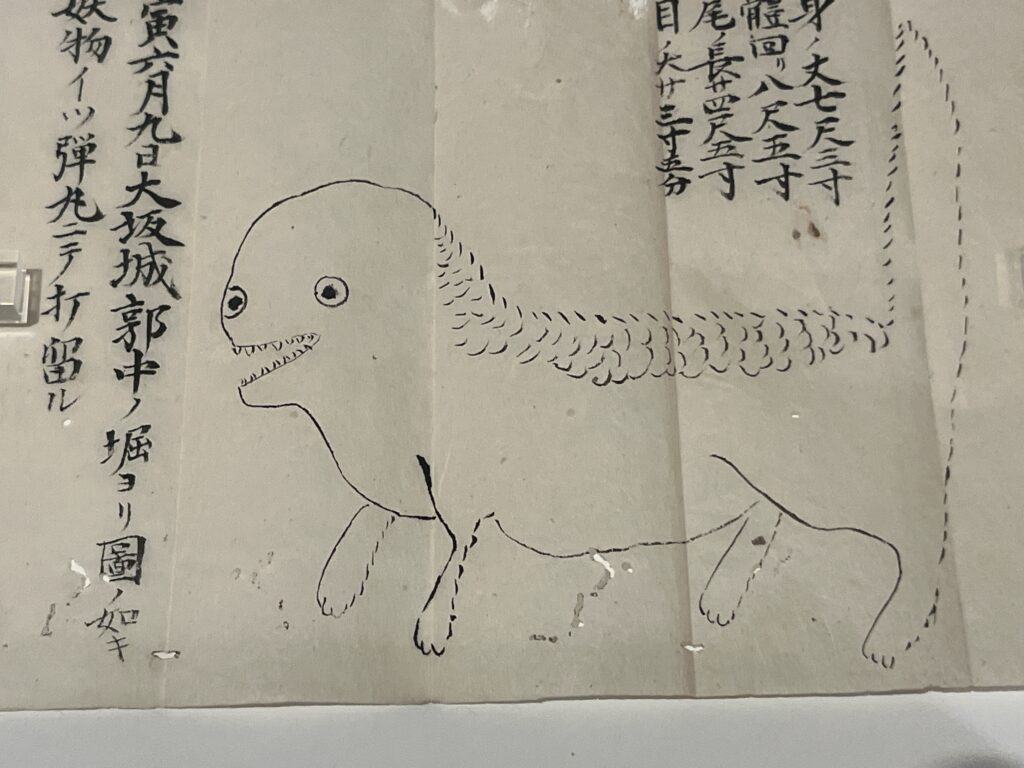 身ノ丈七尺三寸
體回リ八尺五寸
尾ノ長サ四尺五寸
目ノ大サ三寸五分
寅六月九日大坂城郭中ノ堀ヨリ圖ノ如キ
妖物イツ弾丸ニテ打留ル